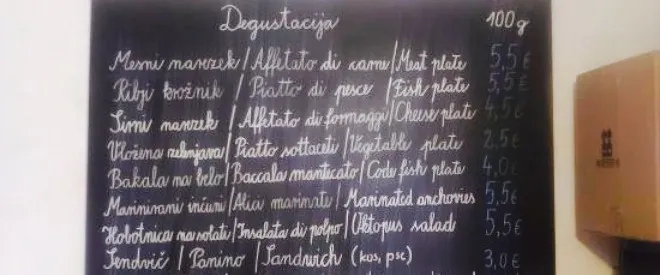 Degustacija 100g
Mesni narezek / Affetato di carne / Meat plate 5,5€
Ribji krožnik / Piatto di pesce / Fish plate 5,5€
Sirni narezek / Affetato di formaggi / Cheese plate 4,5€
Vložena zelenjava / Piatto sottaceti / Vegetable plate 2,5€
Bakala na belo / Baccala mantecato / Code fish plate 4,0€
Marinirani inčuni / Alici marinate / Marinated anchovies 5,5€
Hobotnica na solati / Insalata di polpo / Oktopus salad 5,5€
Sendvič / Panino / Sandwich (kos, psc) 3,0€